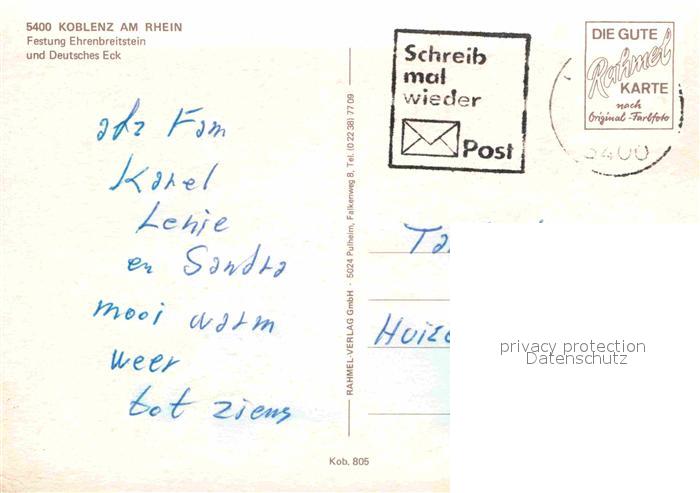 5400 KOBLENZ AM RHEIN
Festung Ehrenbreitstein
und Deutsches Eck
Schreib
mal
wieder
Post
DIE GUTE
Rahmel
KARTE
nach
Original-Farbfoto
5400
Fam
Karel
Lenie
en Sandra
mooi warm
weer
tot ziens
RAHMEL-VERLAG GmbH · 5024 Pulheim, Falkenweg 8, Tel. (0 22 38) 77 09
Kob. 805
privacy protection
Datenschutz